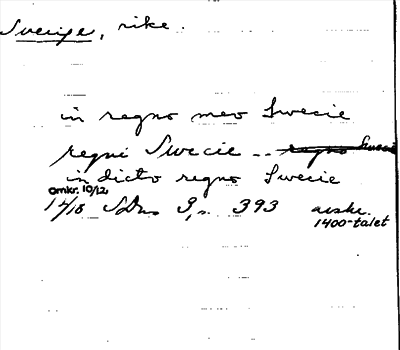 Sverige, rike.
in regno meo Swecie
regni Swecie -- regno Swecie
in dicto regno Swecie
omkr. 10/12
1/18 SDns 3, s. 393 avskr.
1400-talet